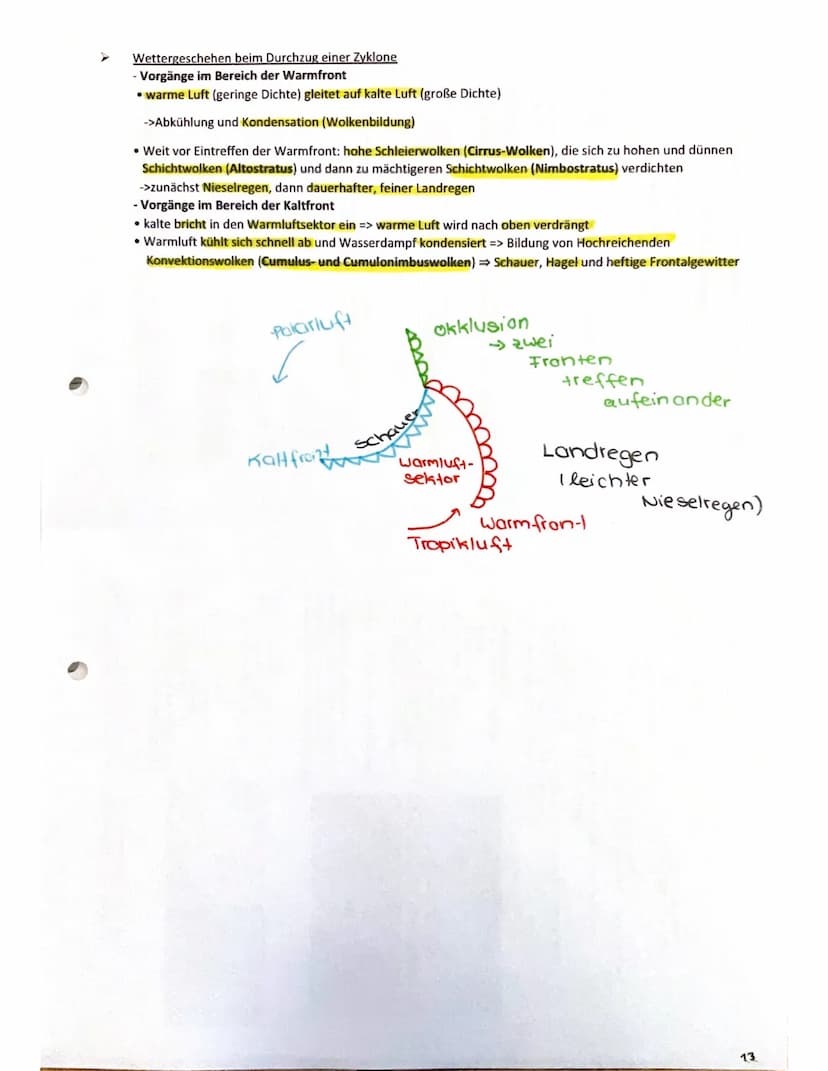 ➤ Wettergeschehen beim Durchzug einer Zyklone
- Vorgänge im Bereich der Warmfront
• warme Luft (geringe Dichte) gleitet auf kalte Luft (große Dichte)
->Abkühlung und Kondensation (Wolkenbildung)
• Weit vor Eintreffen der Warmfront: hohe Schleierwolken (Cirrus-Wolken), die sich zu hohen und dünnen
Schichtwolken (Altostratus) und dann zu mächtigeren Schichtwolken (Nimbostratus) verdichten
->zunächst Nieselregen, dann dauerhafter, feiner Landregen
- Vorgänge im Bereich der Kaltfront
• kalte bricht in den Warmluftsektor ein => warme Luft wird nach oben verdrängt
• Warmluft kühlt sich schnell ab und Wasserdampf kondensiert => Bildung von Hochreichenden
Konvektionswolken (Cumulus- und Cumulonimbuswolken) ⇒ Schauer, Hagel und heftige Frontalgewitter
Polarluft
Okklusion
→ zwei
Fronten
treffen
aufeinander
Schauer
Kaltfront
Warmluft-
sektor
Landregen
(leichter
Nieselregen)
Warmfront
Tropikluft
13